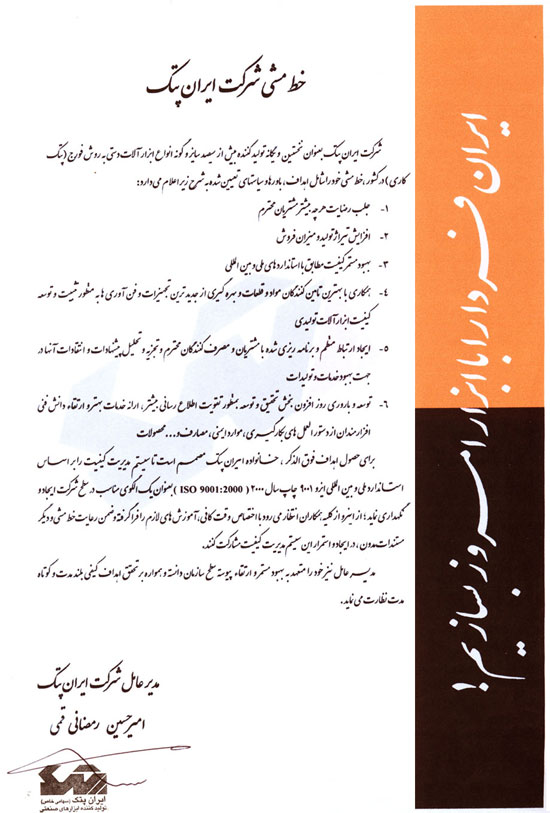 خط مشی شرکت ایران پتک
شرکت ایران پتک بعنوان نخستین و یگانه تولید کننده بیش از سیصد سایز و گونه انواع ابزار آلات دستی به روش فورج (پتک
کاری) در کشور، خط مشی خود را شامل اهداف، باورها و سیاستهای تعیین شده به شرح زیر اعلام می دارد:
۱- جلب رضایت هر چه بیشتر مشتریان محترم
۲- افزایش تیراژ تولید و میزان فروش
۳- بهبود مستمر کیفیت مطابق با استانداردهای ملی و بین المللی
۴- همکاری با بهترین تامین کنندگان مواد و قطعات و بهره گیری از جدید ترین تجهیزات و فن آوری ها به منظور تثبیت و توسعه
کیفیت ابزار آلات تولیدی
۵- ایجاد ارتباط منظم و برنامه ریزی شده با مشتریان و مصرف کنندگان محترم و تجزیه و تحلیل پیشنهادات و انتقادات آنها در
جهت بهبود خدمات و تولیدات
۶- توسعه و باروری روز افزون بخش تحقیق و توسعه بمنظور تقویت اطلاع رسانی بیشتر، ارائه خدمات بهتر و ارتقاء دانش فنی
افزارمندان از دستورالعمل های بکارگیری، موارد ایمنی، مصارف و... محصولات
برای حصول اهداف فوق الذکر، خانواده ایران پتک مصمم است تا سیستم مدیریت کیفیت را بر اساس
استاندارد ملی و بین المللی ایزو ۹۰۰۱ چاپ سال ۲۰۰۰ ( ISO 9001:2000 ) بعنوان یک الگوی مناسب در سطح شرکت ایجاد و
نگهداری نماید؛ از اینرو از کلیه همکاران انتظار می رود با اختصاص وقت کافی، آموزش های لازم را فرا گرفته و ضمن رعایت خط مشی و دیگر
مستندات مدون، در ایجاد و استمرار این سیستم مدیریت کیفیت مشارکت کنند.
مدیر عامل نیز خود را متعهد به بهبود مستمر و ارتقاء پیوسته سطح سازمان دانسته و همواره بر تحقق اهداف کیفی بلند مدت و کوتاه
مدت نظارت می نماید.
مدیر عامل شرکت ایران پتک
امیرحسین رمضانی قمی
ایران پتک (سهامی خاص)
تولید کننده ابزارهای صنعتی
ایران فردا را با ابزار امروز بسازیم!